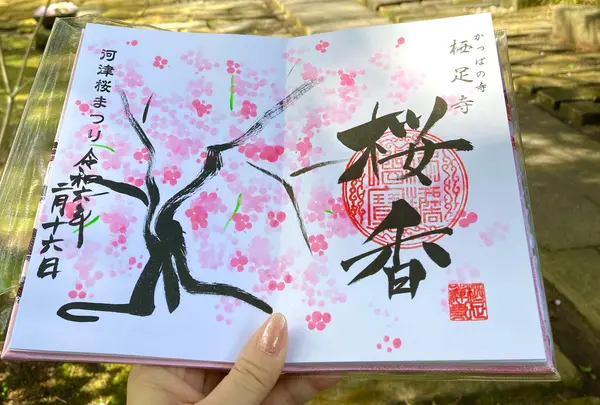 かっぱの寺
栖足寺
桜香
河津桜まつり
令和六年
二月十六日